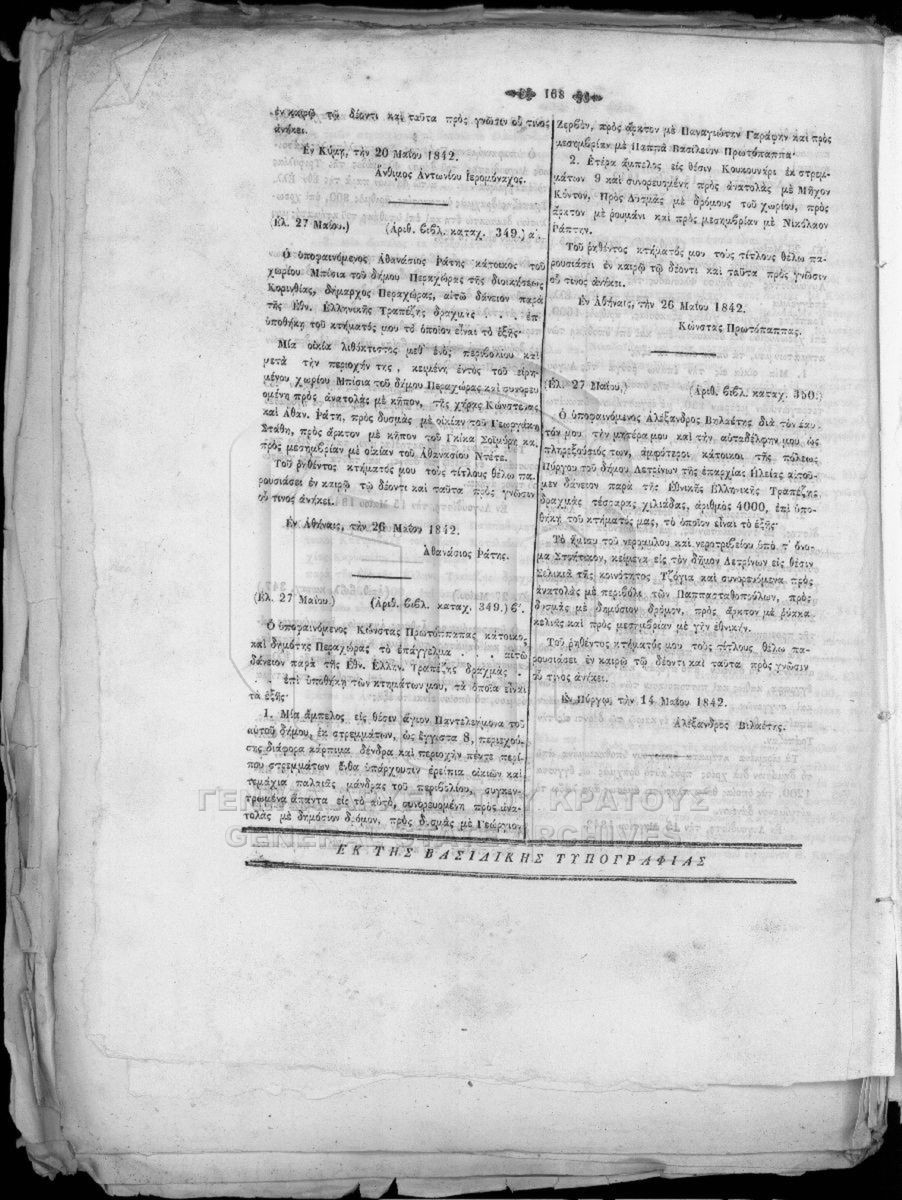 168
ἐν καιρῷ τῷ δέοντι καὶ ταῦτα πρὸς γνῶσιν οὗ τινος
ἀνήκει.
Ἐν Κύμῃ, τὴν 20 Μαΐου 1842.
Ἄνθιμος Ἀντωνίου Ἱερομόναχος.
(Ἐλ. 27 Μαΐου.) (Ἀριθ. βιβλ. καταχ. 349.) α΄.
Ὁ ὑποφαινόμενος Ἀθανάσιος Ράτης κάτοικος τοῦ
χωρίου Μπίσια τοῦ δήμου Περαχώρας τῆς διοικήσεως
Κορινθίας, δήμαρχος Περαχώρας, αἰτῶ δάνειον παρὰ
τῆς Ἐθν. Ἑλληνικῆς Τραπέζης δραχμὰς . . ἐπὶ
ὑποθήκῃ τοῦ κτήματός μου τὸ ὁποῖον εἶναι τὸ ἑξῆς·
Μία οἰκία λιθόκτιστος μεθ' ἑνὸς περιβολίου καὶ
μετὰ τὴν περιοχήν της, κειμένη ἐντὸς τοῦ εἰρη-
μένου χωρίου Μπίσια τοῦ δήμου Περαχώρας καὶ συνορευ-
ομένη πρὸς ἀνατολὰς μὲ κῆπον, τῆς χήρας Κώνστενας
καὶ Ἀθαν. Ράτη, πρὸς δυσμὰς μὲ οἰκίαν τοῦ Γεωργάκη
Στάθη, πρὸς ἄρκτον μὲ κῆπον τοῦ Γκίκα Σοϊμύρη κα.
πρὸς μεσημβρίαν μὲ οἰκίαν τοῦ Ἀθανασίου Ντέτε.
Τοῦ ῥηθέντος κτήματός μου τοὺς τίτλους θέλω πα-
ρουσιάσει ἐν καιρῷ τῷ δέοντι καὶ ταῦτα πρὸς γνῶσιν
οὗ τινος ἀνήκει.
Ἐν Ἀθήναις, τὴν 26 Μαΐου 1842.
Ἀθανάσιος Ράτης.
(Ἐλ. 27 Μαΐου.) (Ἀριθ. βιβλ. καταχ. 349.) β΄.
Ὁ ὑποφαινόμενος Κώνστας Πρωτόππαπας κάτοικος
καὶ δημότης Περαχώρας τὸ ἐπάγγελμα . . αἰτῶ
δάνειον παρὰ τῆς Ἐθν. Ἑλλην. Τραπέζης δραχμὰς .
. ἐπὶ ὑποθήκῃ τῶν κτημάτων μου, τὰ ὁποῖα εἶναι
τὰ ἑξῆς·
1. Μία ἄμπελος εἰς θέσιν ἅγιον Παντελεήμονα τοῦ
αὐτοῦ δήμου, ἐκ στρεμμάτων, ὡς ἔγγιστα 8, περιεχού-
σης διάφορα κάρπιμα δένδρα καὶ περιοχὴν πέντε περί-
που στρεμμάτων ἔνθα ὑπάρχουσιν ἐρείπια οἰκιῶν καὶ
τεμάχια παλαιᾶς μάνδρας τοῦ περιβολίου, συγκεν-
τρωμένα ἅπαντα εἰς τὸ αὐτὸ, συνορευομένη πρὸς ἀνα-
τολὰς μὲ δημόσιον δρόμον, πρὸς δυσμὰς μὲ Γεώργιον
Ζερβὸν, πρὸς ἄρκτον μὲ Παναγιώτην Γαράφην καὶ πρὸς
μεσημβρίαν μὲ Παππᾶ Βασίλειον Πρωτόπαππα·
2. Ἑτέρα ἄμπελος εἰς θέσιν Κουκουνάρι ἐκ στρεμ-
μάτων 9 καὶ συνορευομένη πρὸς ἀνατολὰς μὲ Μῆχον
Κόντον, Πρὸς Δυσμὰς μὲ δρόμους τοῦ χωρίου, πρὸς
ἄρκτον μὲ ρουμάνι καὶ πρὸς μεσημβρίαν μὲ Νικόλαον
Ράπτην.
Τοῦ ῥηθέντος κτήματός μου τοὺς τίτλους θέλω πα-
ρουσιάσει ἐν καιρῷ τῷ δέοντι καὶ ταῦτα πρὸς γνῶσιν
οὗ τινος ἀνήκει.
Ἐν Ἀθήναις, τὴν 26 Μαΐου 1842.
Κώνστας Πρωτόπαππας.
(Ἐλ. 27 Μαΐου.) (Ἀριθ. βιβλ. καταχ. 350.)
Ὁ ὑποφαινόμενος Ἀλέξανδρος Βιλαέτης διὰ τὸν ἑαυ-
τόν μου τὴν μητέρα μου καὶ τὴν αὐταδέλφην μου, ὡς
πληρεξούσιός των, ἀμφότεροι κάτοικοι τῆς πόλεως
Πύργου τοῦ δήμου Λετρίνων τῆς ἐπαρχίας Ἠλείας αἰτοῦ-
μεν δάνειον παρὰ τῆς Ἐθνικῆς Ἑλληνικῆς Τραπέζης
δραχμὰς τέσσαρας χιλιάδας, ἀριθμὸς 4000, ἐπὶ ὑπο-
θήκῃ τοῦ κτήματός μας, τὸ ὁποῖον εἶναι τὸ ἑξῆς·
Τὸ ἥμισυ τοῦ νερομύλου καὶ νεροτριβείου ὑπὸ τ' ὄνο-
μα κείμενα εἰς τὸν δῆμον Λετρίνων εἰς θέσιν
Σελικιᾶ τῆς κοινότητος Τζόγια καὶ συνορευόμενα πρὸς
ἀνατολὰς μὲ περιβόλι τῶν Παππασταθοπούλων, πρὸς
δυσμὰς μὲ δημόσιον δρόμον, πρὸς ἄρκτον μὲ ῥύακα
καὶ πρὸς μεσημβρίαν μὲ γῆν ἐθνικήν.
Τοῦ ῥηθέντος κτήματός μου τοὺς τίτλους θέλω πα-
ρουσιάσει ἐν καιρῷ τῷ δέοντι καὶ ταῦτα πρὸς γνῶσιν
οὗ τινος ἀνήκει.
Ἐν Πύργῳ, τὴν 14 Μαΐου 1842.
Ἀλέξανδρος Βιλαέτης.
ΓΕΝΙΚΑ ΑΡΧΕΙΑ ΤΟΥ ΚΡΑΤΟΥΣ
GENERAL STATE ARCHIVES
ΕΚ ΤΗΣ ΒΑΣΙΛΙΚΗΣ ΤΥΠΟΓΡΑΦΙΑΣ